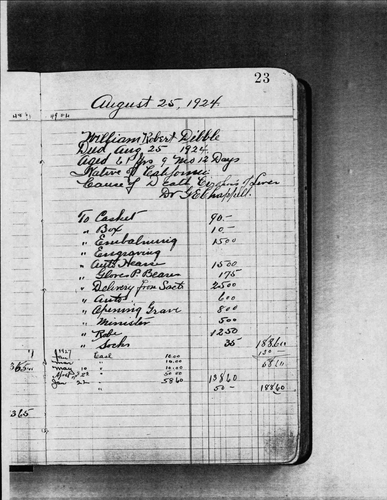 23
August 25, 1924
William Robert Dibble
Died Aug 25 1924
Aged 61 Yrs 9 Mos 12 Days
Native of California
Cause of Death Cirrhosis of Liver
Dr G E Chappell.
To Casket 90.-
" Box 10.-
" Embalming 1500
" Engraving
" Auto Hearse 1500
" Glove P. Bearer 175
" Delivery from Sacto 2500
" Auto 600
" Opening Grave 800
" Minister 500
" Robe 1250
" Socks 35 18860
1927
Jan Cash 10.00
10.00
May 10 " 10.00
50.00
Jan 5860 13860
50- 18860
365